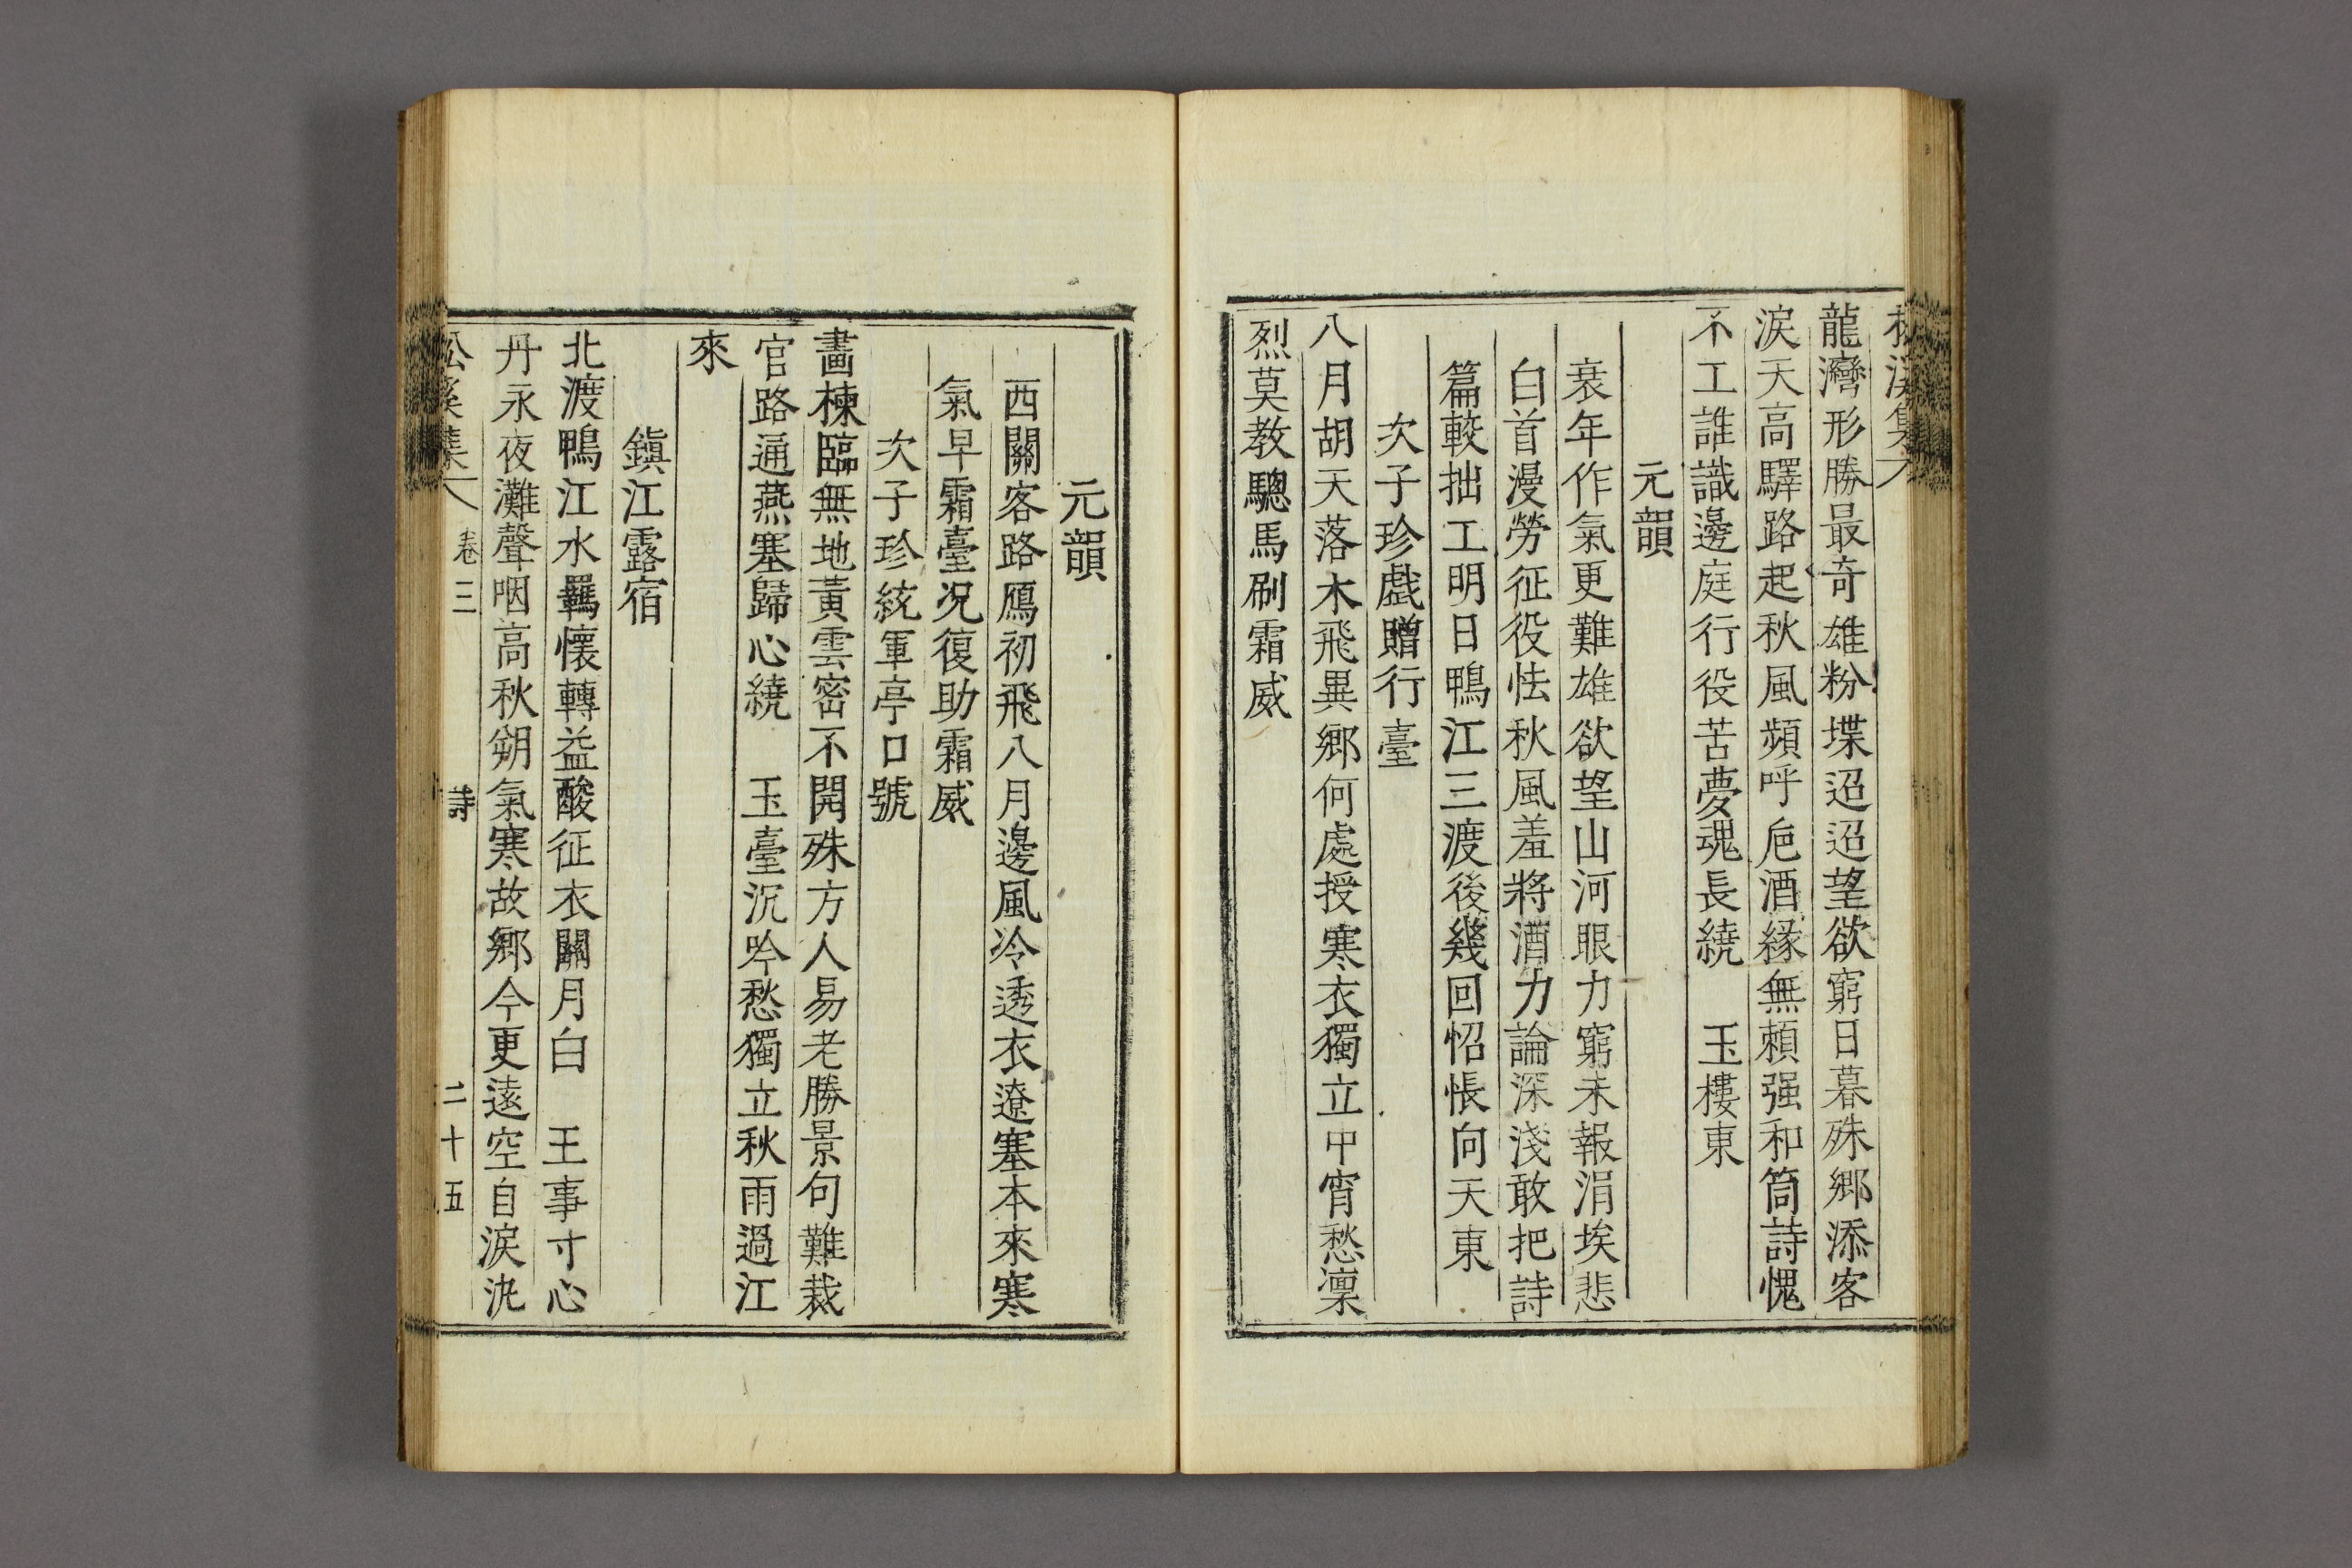 龍灣形勝最奇雄粉堞迢迢望欲窮日暮殊郷添客
淚天高驛路起秋風頻呼巵酒緣無賴强和筒詩愧
不工誰識邊庭行役苦夢魂長繞　玉樓東
元韻
衰年作氣更難雄欲望山河眼力窮未報涓埃悲
白首漫勞征役怯秋風羞將酒力論深淺敢把詩
篇較拙工明日鴨江三渡後幾回怊悵向天東
次子珍戱贈行臺
八月胡天落木飛異郷何處授寒衣獨立中宵愁凛
烈莫教驄馬刷霜威
元韻
西關客路鴈初飛八月邊風冷透衣遼塞本來寒
氣早霜臺况復助霜威
次子珍統軍亭口號
畵棟臨無地黃雲密不開殊方人易老勝景句難裁
官路通燕塞歸心繞　玉臺沉吟愁獨立秋雨過江
來
鎭江露宿
北渡鴨江水羈懷轉益酸征衣關月白　王事寸心
丹永夜灘聲咽高秋朔氣寒故郷今更遠空自淚汍
松溪集　卷三　詩　二十五